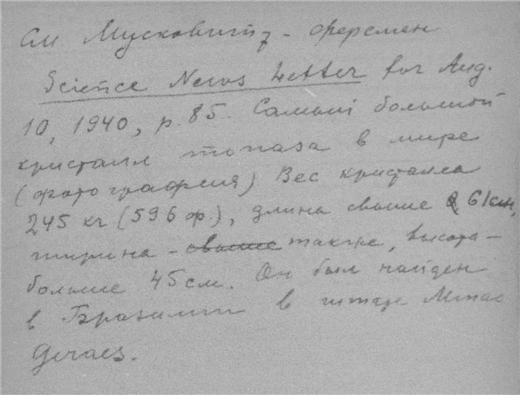 См Мусковит - Ферсмен
Science News Letter for Aug.
10, 1940, p. 85. Самый большой
кристалл топаза в мире
(фотография) Вес кристалла
245 кг (596 ф.), длина свыше 61 см,
ширина - свыше также, высота -
больше 45 см. Он был найден
в Бразилии в штате Minas
Geraes.